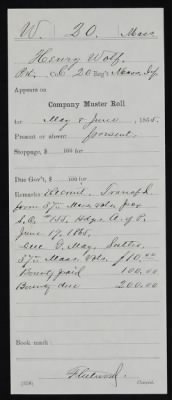 W. 20. Mass
Henry Wolf.
Pvt., Co. C 20 Reg't Mass. Inf.
Appears on
Company Muster Roll
for May & June, 1865.
Present or absent: present
Stoppage, $ 100 for
Due Gov't, $ 100 for
Remarks: Recruit. Transf'd
from 57th Mass. Vols. per
S.O. #155. Hdqrs. A. of P.
June 17, 1865.
Due G. May, Sutler
57th Mass. Vols. $10.00
Bounty paid 100.00
Bounty due 200.00
Book mark:
(358) Copyist.